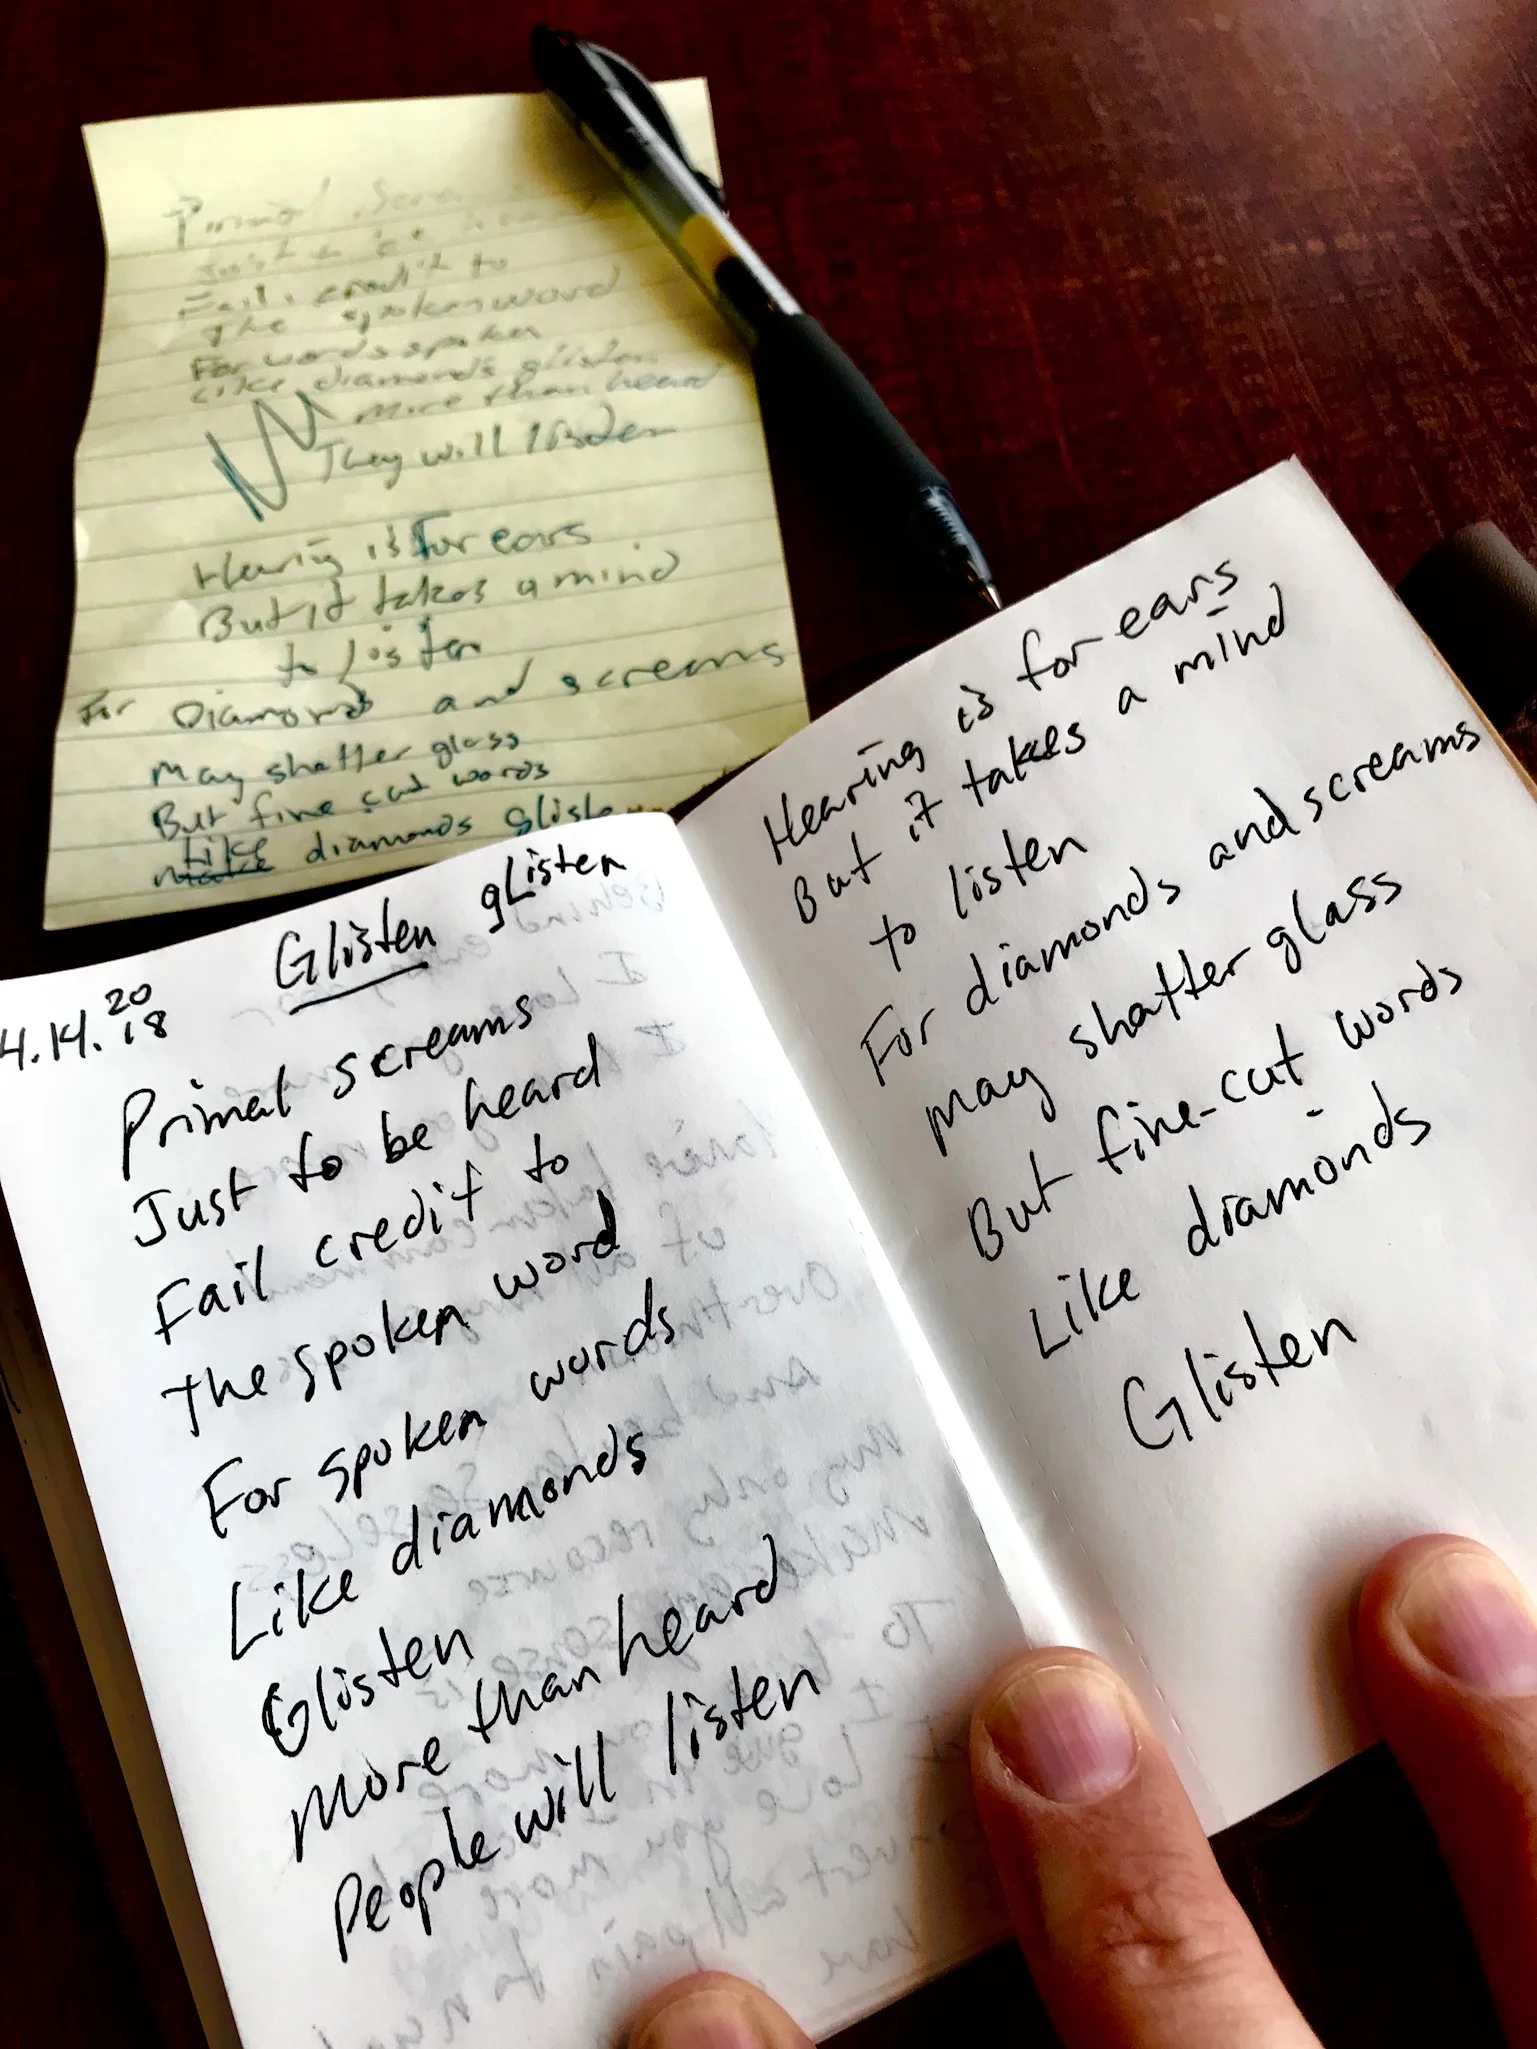 Just to be
Fail credit to
the spoken word
For words spoken
Like diamonds glisten
More than heard
They will listen
Hearing is for ears
But it takes a mind
to listen
For Diamonds and screams
May shatter glass
But fine cut words
Like
make diamonds glisten
Glisten glisten
4.14.2018
Primal screams
Just to be heard
Fail credit to
the spoken word
For spoken words
Like diamonds
Glisten
More than heard
People will listen
Hearing is for ears
But it takes a mind
to listen
For diamonds and screams
may shatter glass
But fine-cut words
Like diamonds
Glisten